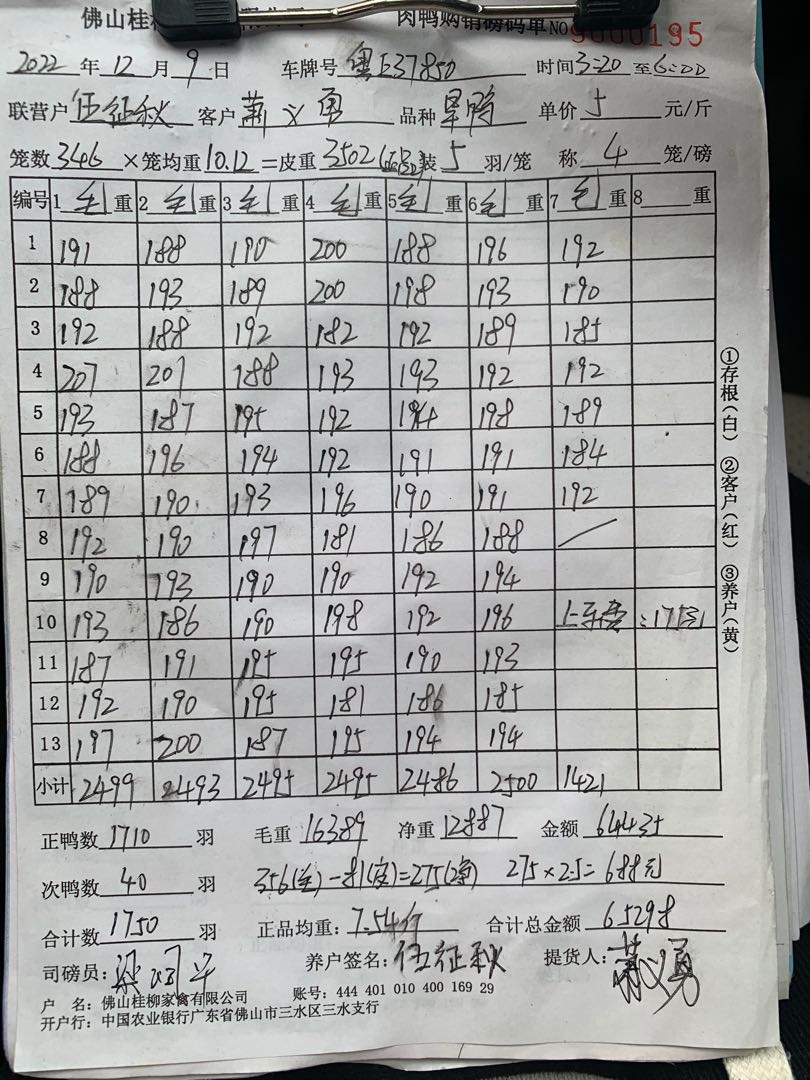 佛山桂柳 肉鸭购销磅码单 NO 9000195
2022 年 12 月 9 日 车牌号 粤E37850 时间 3:20 至 6:00
联营户 伍征秋 客户 萧义勇 品种 旱鸭 单价 5 元/斤
笼数 346 ×笼均重 10.12 =皮重 3502 装 5 羽/笼 称 4 笼/磅
编号 1 毛 重 2 毛 重 3 毛 重 4 毛 重 5 毛 重 6 毛 重 7 毛 重 8 重
1 191 188 190 200 188 196 192
2 188 193 189 200 198 193 190
3 192 188 192 182 192 189 185
4 207 207 188 193 193 192 192
5 193 187 195 192 194 198 189
6 188 196 194 192 191 191 184
7 189 190 193 196 190 191 192
8 192 190 197 181 186 188
9 190 193 190 190 192 194
10 193 186 190 198 192 196 上车费:175元
11 187 191 195 195 190 193
12 192 190 195 181 186 185
13 197 200 187 195 194 194
小计 2499 2493 2495 2495 2486 2500 1421
正鸭数 1710 羽 毛重 16389 净重 12887 金额 64435
次鸭数 40 羽 356(毛)-81(皮)=275(净) 275×2.5=688元
合计数 1750 羽 正品均重: 7.54斤 合计总金额 65298
司磅员: 养户签名: 伍征秋 提货人: 萧义勇
户 名: 佛山桂柳家禽有限公司 账号: 444 401 010 400 169 29
开户行: 中国农业银行广东省佛山市三水区三水支行
①存根(白) ②客户(红) ③养户(黄)